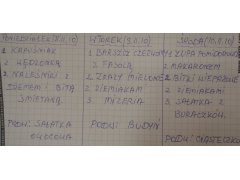 PONIEDZIAŁEK (8.11.10)
1. KAPUŚNIAK
Z WĘDZONKĄ
2. NALEŚNIKI Z
DŻEMEM I BITĄ
ŚMIETANĄ
PODW: SAŁATKA
OWOCOWA
WTOREK (9.11.10)
1. BARSZCZ CZERWONY
Z FASOLĄ
2. ZRAZY MIELONE
Z ZIEMNIAKAMI
3. MIZERIA
PODW: BUDYŃ
ŚRODA (10.11.10)
1. ZUPA POMIDOROWA
Z MAKARONEM
2. BITKI WIEPRZOWE
Z ZIEMNIAKAMI
3. SAŁATKA Z
BURACZKÓW
PODW: CIASTECZKO